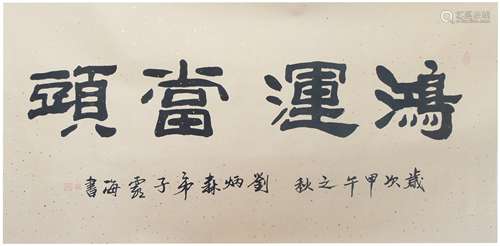 鴻運當頭
歲次甲午之秋 劉炳森弟子露海書